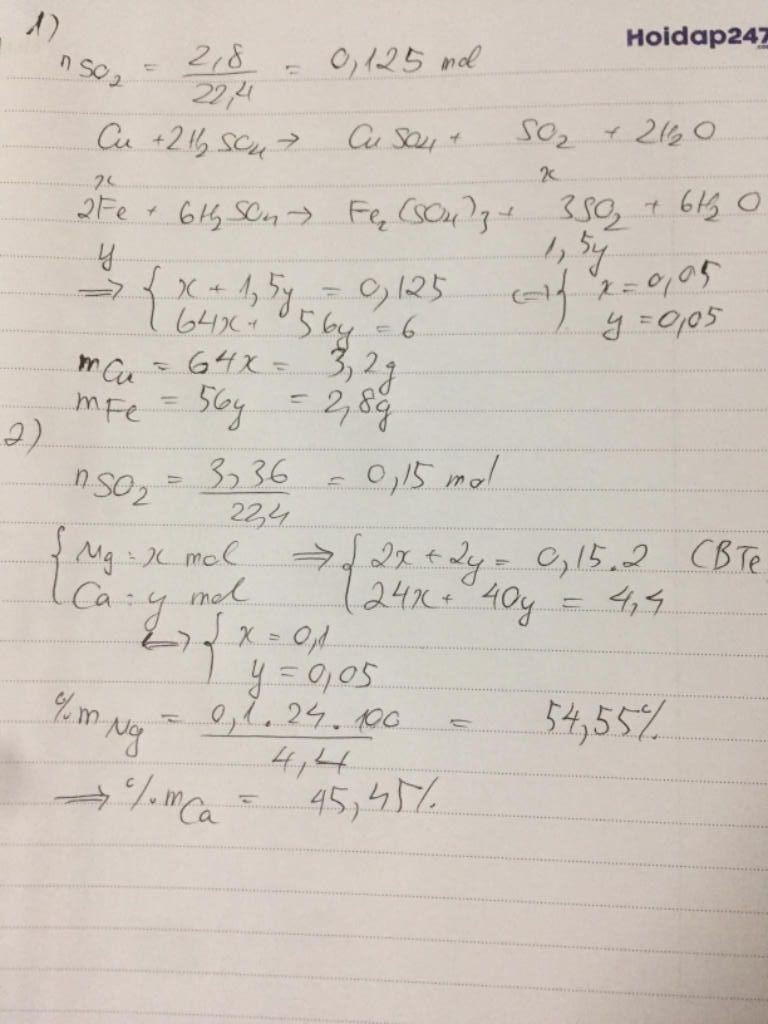 1)
Hoidap247
nSO2 = 2,8/22,4 = 0,125 mol
Cu + 2H2SO4 → CuSO4 + SO2 + 2H2O
x x
2Fe + 6H2SO4 → Fe2(SO4)3 + 3SO2 + 6H2O
y 1,5y
⇒ { x + 1,5y = 0,125 ⇔ { x = 0,05
64x + 56y = 6 y = 0,05
mCu = 64x = 3,2g
mFe = 56y = 2,8g
2)
nSO2 = 3,36/22,4 = 0,15 mol
{ Mg: x mol ⇒ { 2x + 2y = 0,15.2 (BTe
Ca: y mol 24x + 40y = 4,4
↔ { x = 0,1
y = 0,05
%mMg = 0,1.24.100/4,4 = 54,55%
⇒ %mCa = 45,45%